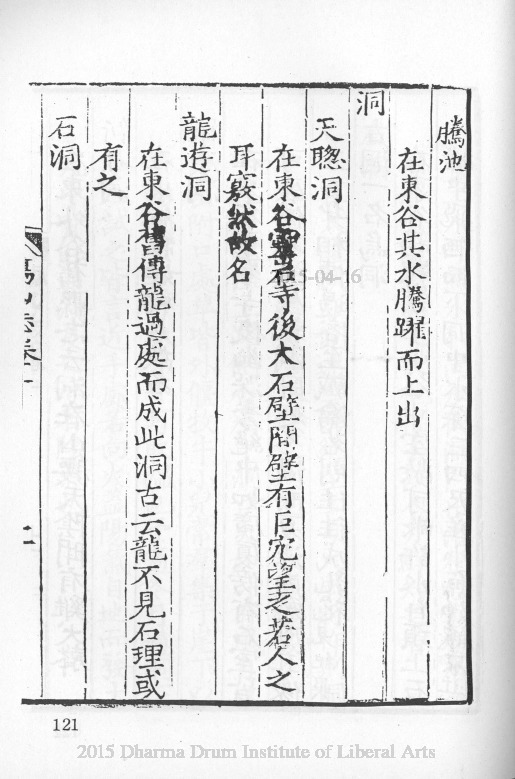 騰池
在東谷其水騰躍而上出
洞
天聦洞
在東谷靈岩寺後大石壁間壁有巨穴望之若人之
耳竅然故名
龍遊洞
在東谷舊傳龍過處而成此洞古云龍不見石理或
有之
石洞
121
2015 Dharma Drum Institute of Liberal Arts